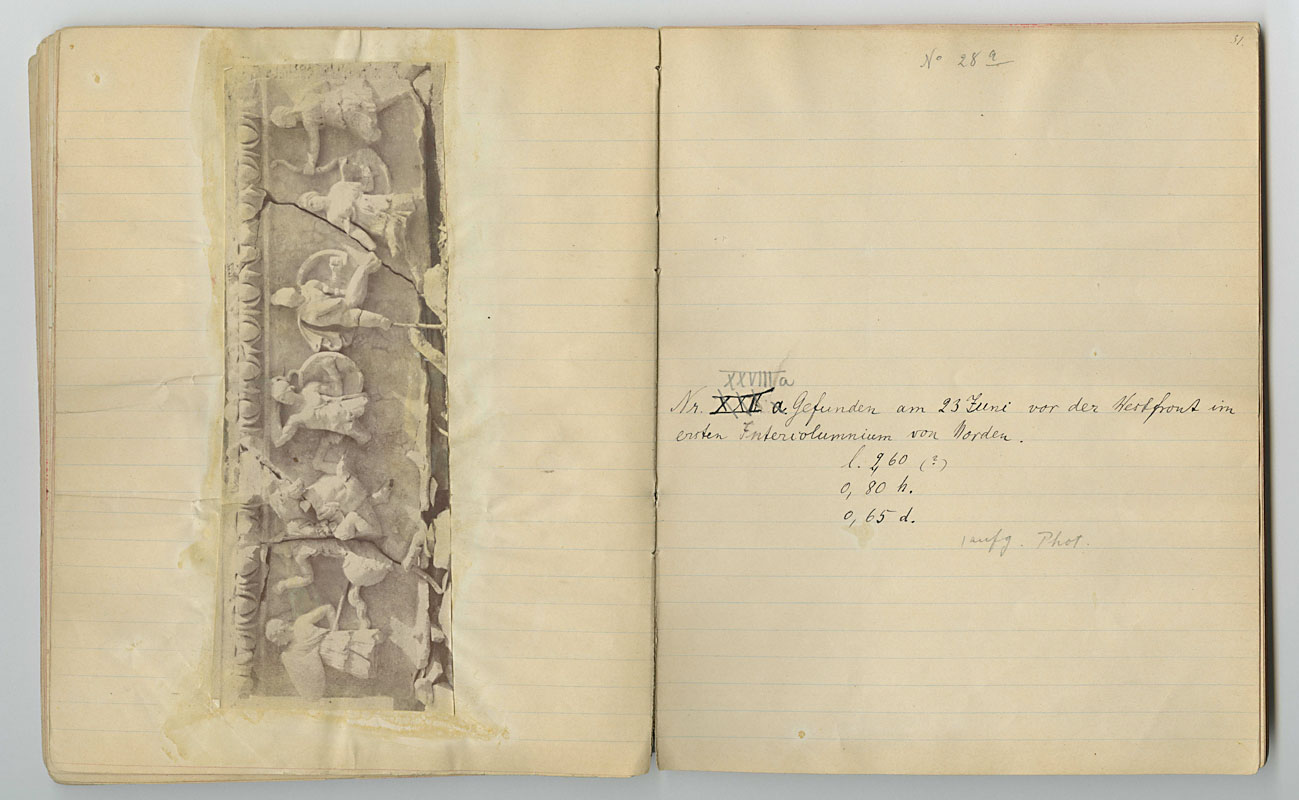 51.
No 28a
XXVIIIa
Nr. XXI a. Gefunden am 23 Juni vor der Westfront im
ersten Intercolumnium von Norden.
l. 2,60 (?)
0,80 h.
0,65 d.
aufg. Phot.